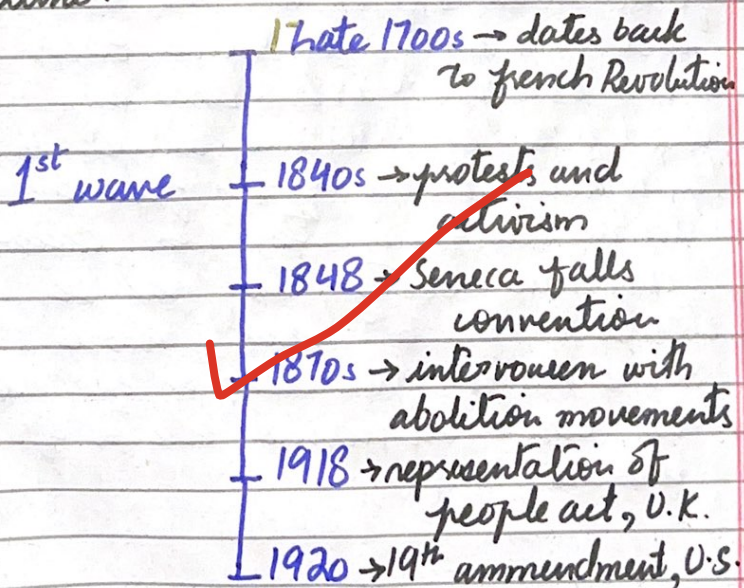 Late 1700s → dates back
to french Revolution
1st wave
1840s → protests and
activism
1848 → Seneca falls
convention
1870s → intervowen with
abolition movements
1918 → representation of
people act, U.K.
1920 → 19th ammendment, U.S.